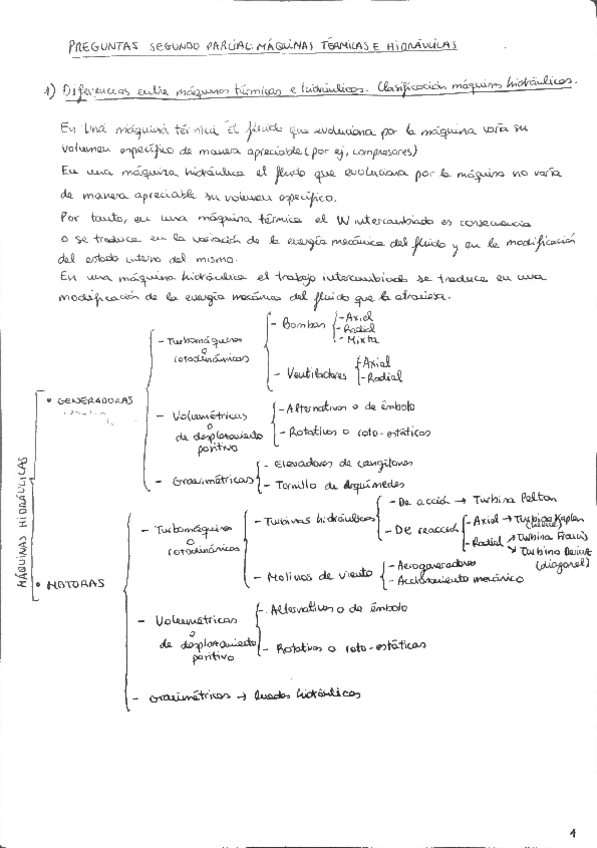 PREGUNTAS SEGUNDO PARCIAL: MÁQUINAS TÉRMICAS E HIDRÁULICAS
1) Diferencias entre máquinas térmicas e hidráulicas. Clasificación máquinas hidráulicas.
En una máquina térmica el fluido que evoluciona por la máquina varía su
volumen específico de manera apreciable (por ej, compresores)
En una máquina hidráulica el fluido que evoluciona por la máquina no varía
de manera apreciable su volumen específico.
Por tanto, en una máquina térmica el W intercambiado es consecuencia
o se traduce en la variación de la energía mecánica del fluido y en la modificación
del estado interno del mismo.
En una máquina hidráulica el trabajo intercambiado se traduce en una
modificación de la energía mecánica del fluido que la atraviesa.
MÁQUINAS HIDRÁULICAS
• GENERADORAS
- Turbomáquinas
o
rotodinámicas
- Bombas
- Axial
- Radial
- Mixta
- Ventiladores
- Axial
- Radial
- Volumétricas
o
de desplazamiento
positivo
- Alternativos o de émbolo
- Rotativos o roto-estáticos
- Gravimétricas
- Elevadores de cangilones
- Tornillo de Arquímedes
• MOTORAS
- Turbomáquinas
o
rotodinámicas
- Turbinas hidráulicas
- De acción → Turbina Pelton
- De reacción
- Axial → Turbina Kaplan
- Radial ↗ Turbina Francis
↘ Turbina Deriaz
(diagonal)
- Molinos de viento
- Aerogeneradores
- Accionamiento mecánico
- Volumétricas
o
de desplazamiento
positivo
- Alternativos o de émbolo
- Rotativos o roto-estáticas
- Gravimétricas → Ruedas hidráulicas
1